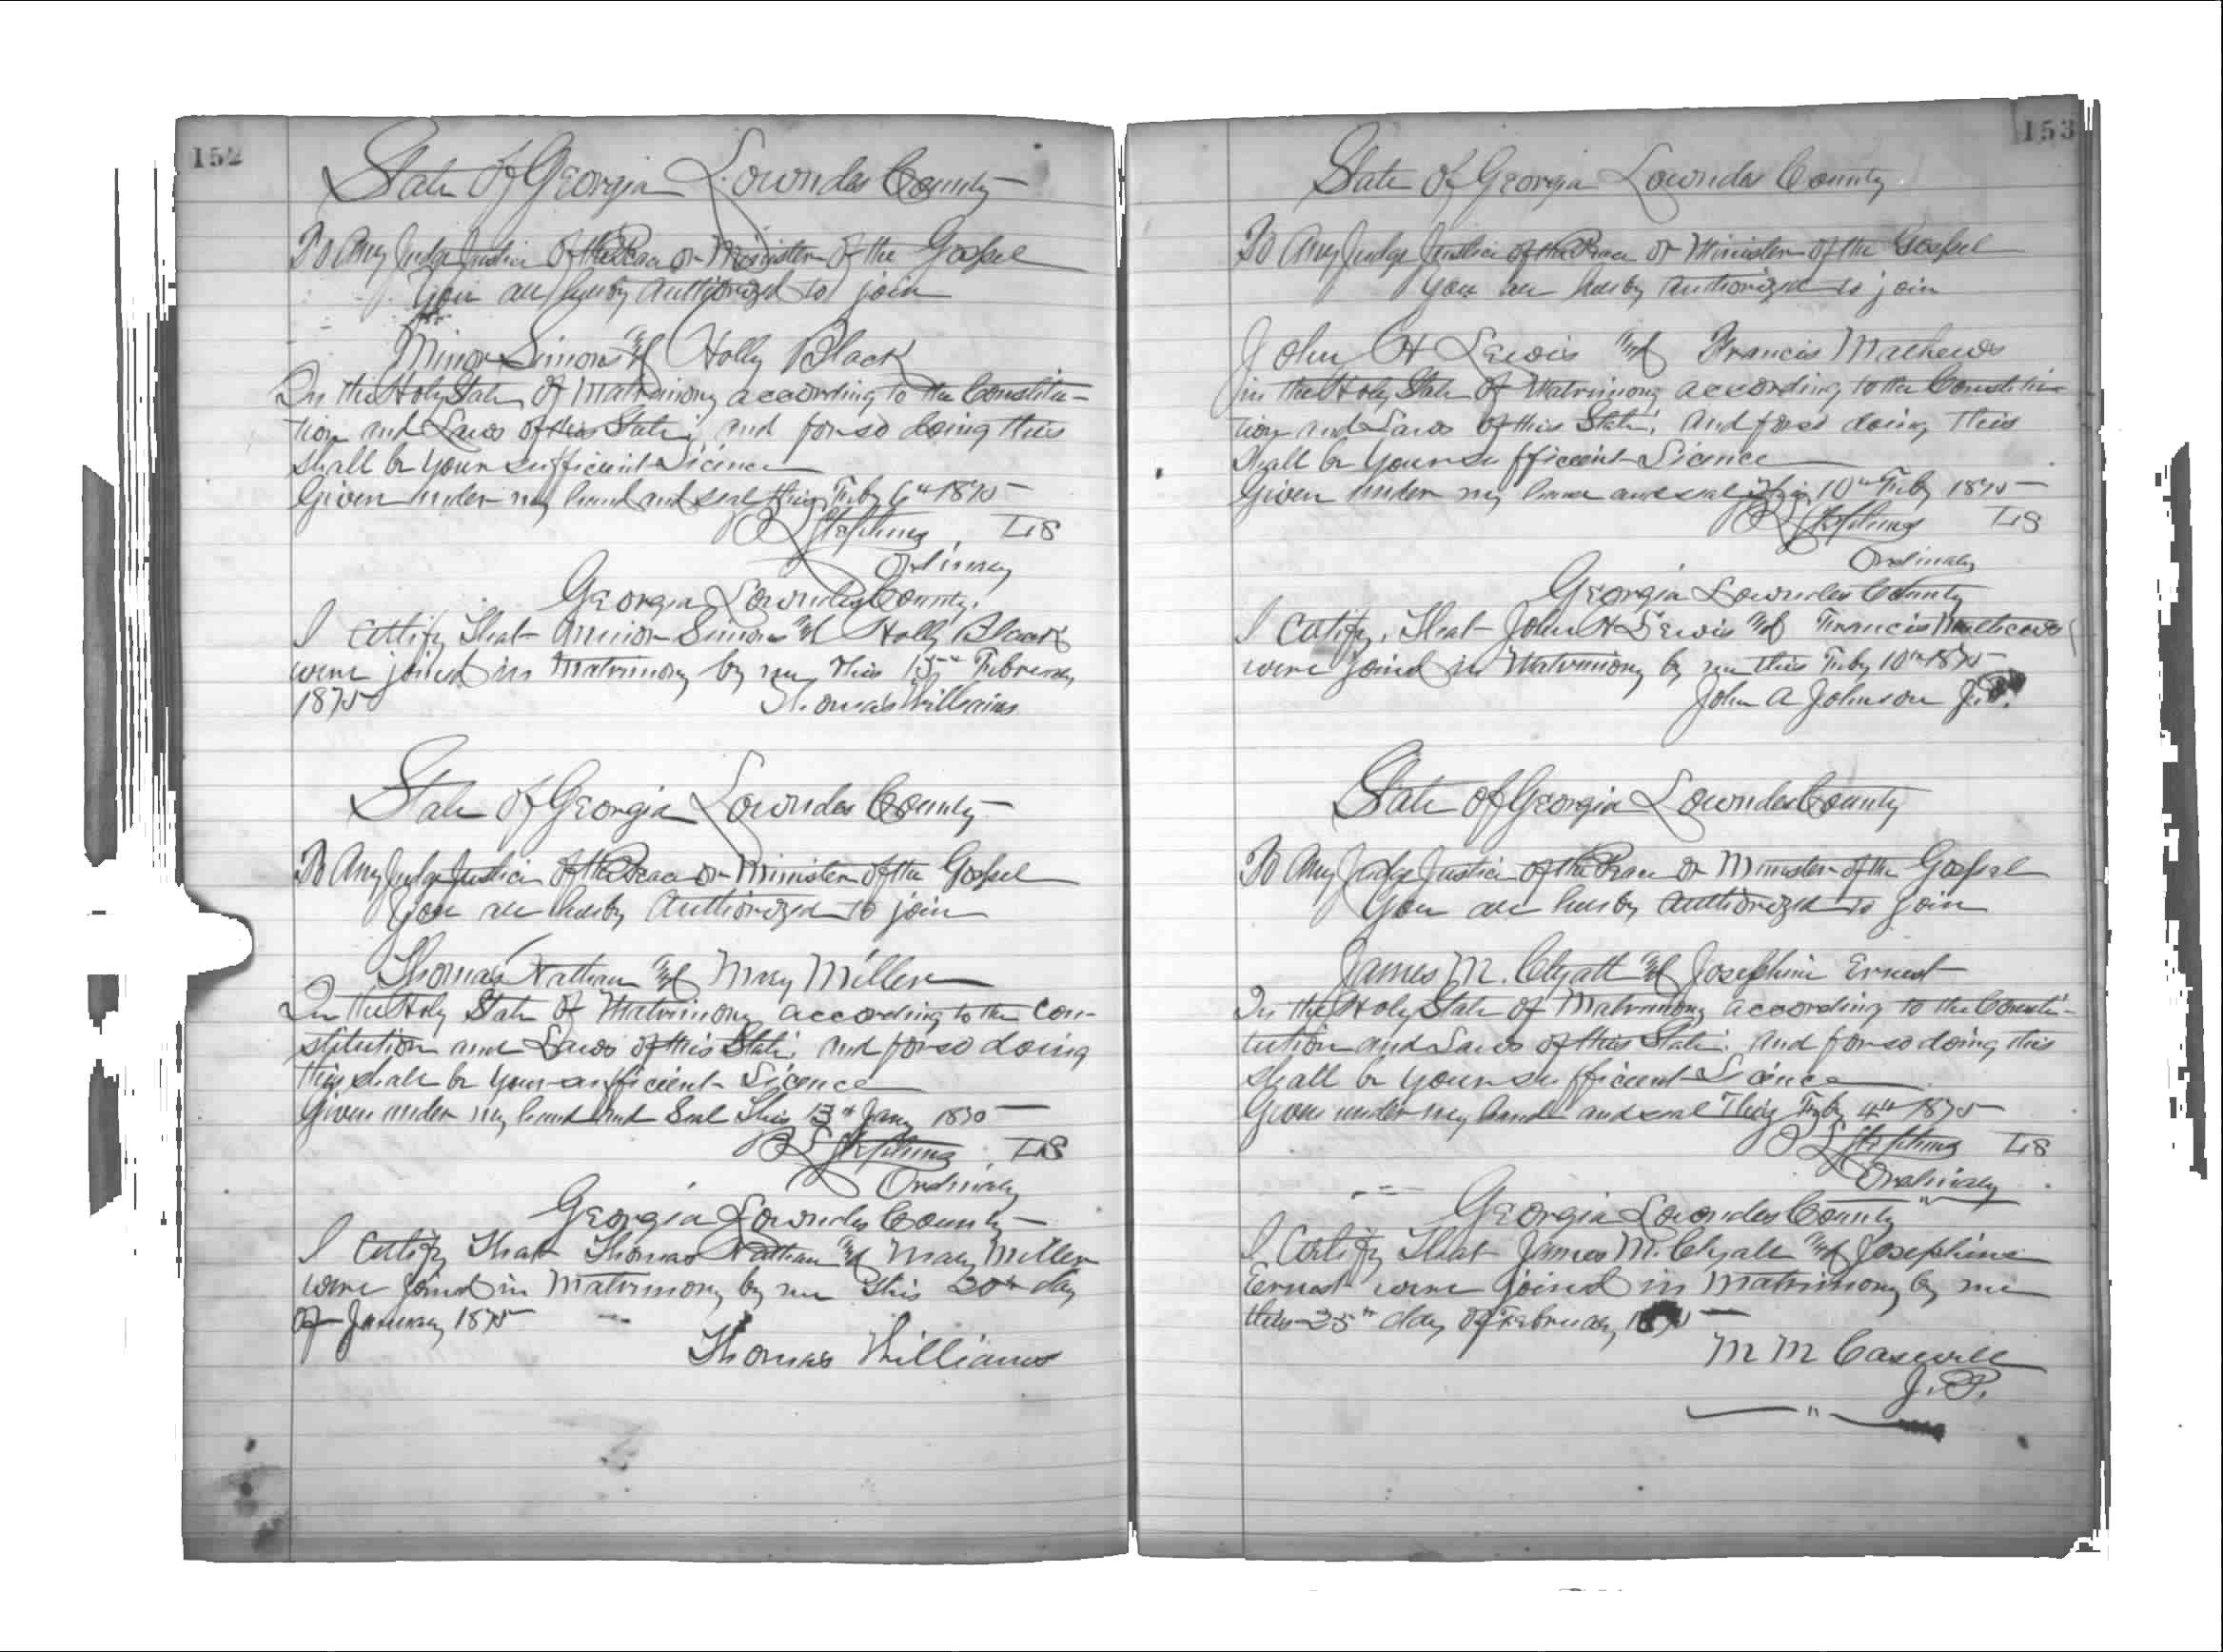 152
State of Georgia Lowndes County
To Any Judge Justice of the Peace or Minister of the Gospel
You are hereby authorized to join
Minor Simons and Holly Black
In the Holy State of Matrimony according to the Constitu-
tion and Laws of this State; and for so doing this
shall be your sufficient Licence
Given under my hand and seal this Feby 6th 1875
Ordinary LS
Georgia Lowndes County.
I Certify That Minor Simons and Holly Black
were joined in Matrimony by me this 15th February
1875
Thomas Williams
State of Georgia Lowndes County
To Any Judge Justice of the Peace or Minister of the Gospel
You are hereby Authorized to join
Thomas Nathan and Mary Miller
In the Holy State of Matrimony according to the Con-
stitution and Laws of this State; and for so doing
this shall be your sufficient Licence
Given under my hand and Seal This 13th Jany 1875
LS
Ordinary
Georgia Lowndes County
I Certify That Thomas Nathan and Mary Miller
were joined in Matrimony by me this 20th day
of January 1875
Thomas Williams
153
State of Georgia Lowndes County
To Any Judge Justice of the Peace or Minister of the Gospel
You are hereby authorized to join
John H Lewis and Francis Mathews
in the Holy State of Matrimony according to the
tion and Laws of this State; and for so doing This
shall be your sufficient Licence
Given under my hand and seal this 10th Feby 1875
LS
Ordinary
Georgia Lowndes County
I Certify, That John H Lewis and Francis Mathews
were joined in Matrimony by me this Feby 10th 1875
John A Johnson J.P.
State of Georgia Lowndes County
To Any Judge Justice of the Peace or Minister of the Gospel
You are hereby authorized to join
James M. Clyatt and Josephine Ernest
In the Holy State of Matrimony according to the Consti-
tution and Laws of this State; and for so doing this
shall be your sufficient Licence
Given under my hand and seal This Feby 4th 1875
LS
Ordinary
Georgia Lowndes County
I Certify That James M. Clyatt and Josephine
Ernest were joined in Matrimony by me
this 25th day of February 1875
M M Caswell
J. P.